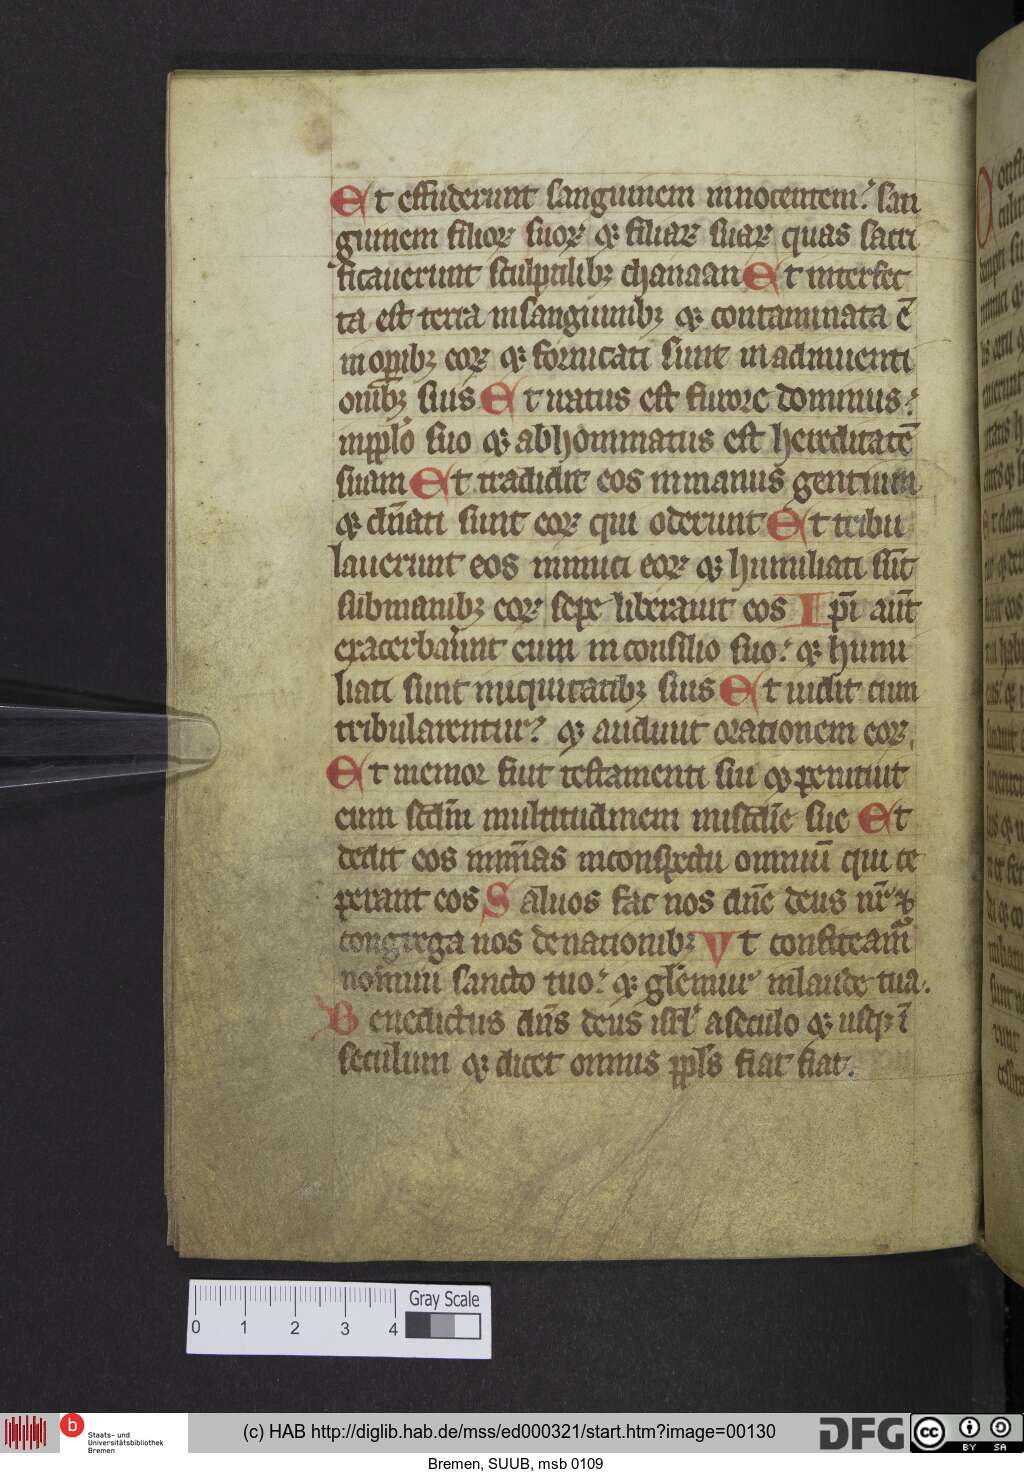 Et effuderunt sanguinem innocentem: san
guinem filioꝝ suoꝝ ⁊ filiaꝝ suaꝝ quas sacri
ficauerunt sculptilibꝫ chanaan Et interfec
ta est terra insanguinibꝫ ⁊ contaminata ē
in oꝑibꝫ eoꝝ ⁊ fornicati sunt in adinuenti
onibꝫ suis Et iratus est furore dominus:
inpplo suo ⁊ abhominatus est hereditatē
suam Et tradidit eos inmanus gentium
⁊ dn̄ati sunt eoꝝ qui oderunt Et tribu
lauerunt eos inimici eoꝝ ⁊ humiliati sūt
submanibꝫ eoꝝ sepe liberauit eos Ipī aūt
exacerbauunt eum in consilio suo: ⁊ humi
liati sunt iniquitatibꝫ suis Et uidit cum
tribularentur: ⁊ audiuit orationem eoꝝ.
Et memor fuit testamenti sui ⁊ penituit
eum scdm̄ multitudinem miscdīe sue Et
dedit eos inmīas inconspectu omniū qui ce
perant eos Saluos fac nos dn̄e deus nr̄ ⁊
congrega nos denationibꝫ Vt confiteamur
nomini sancto tuo: ⁊ glēmur inlaude tua.
Benedictus dn̄s deus isrl̄ aseculo ⁊ usqꝫ ī
seculum ⁊ dicet omnis ppls fiat fiat.
Gray Scale
0 1 2 3 4
b Staats- und
Universitätsbibliothek
Bremen
(c) HAB http://diglib.hab.de/mss/ed000321/start.htm?image=00130
DFG
cc BY SA
Bremen, SUUB, msb 0109